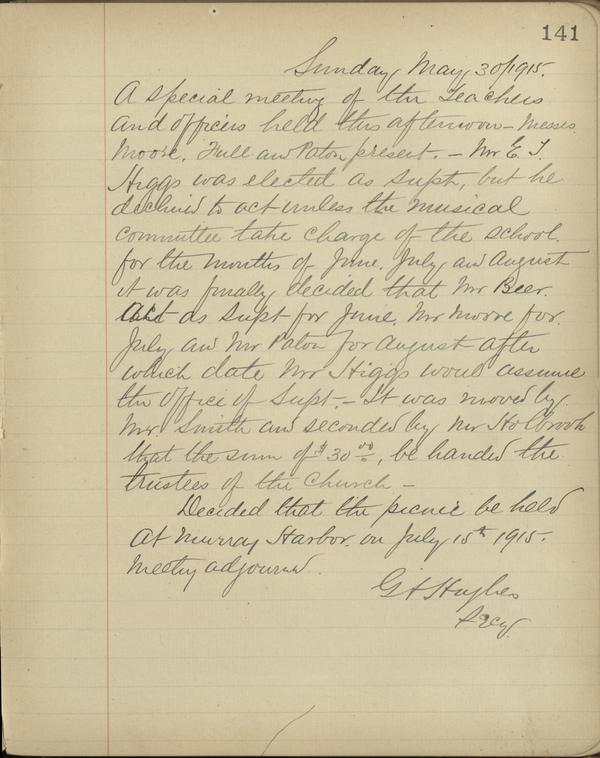 141
Sunday, May, 30/1915.
A special meeting of the teachers
and officers held this afternoon - Messes.
Moore, Full and Paton, present. - Mr E. T.
Higgs was elected as supt, but he
declined to act unless the musical
committee take charge of the school
for the months of June, July, and August
it was finally decided that Mr Beer.
act as Supt for June, Mr Moore for
July and Mr Paton for August after
which date Mr Higgs would assume
the office of Supt. - It was moved by
Mr Smith and seconded by Mr Holbrook
that the sum of $30 00/00, be handed the
trustees of the Church -
Decided that the picnic be held
at Murray Harbor on July 15th 1915.
Meeting adjourned.
G H Hughes
Secy.